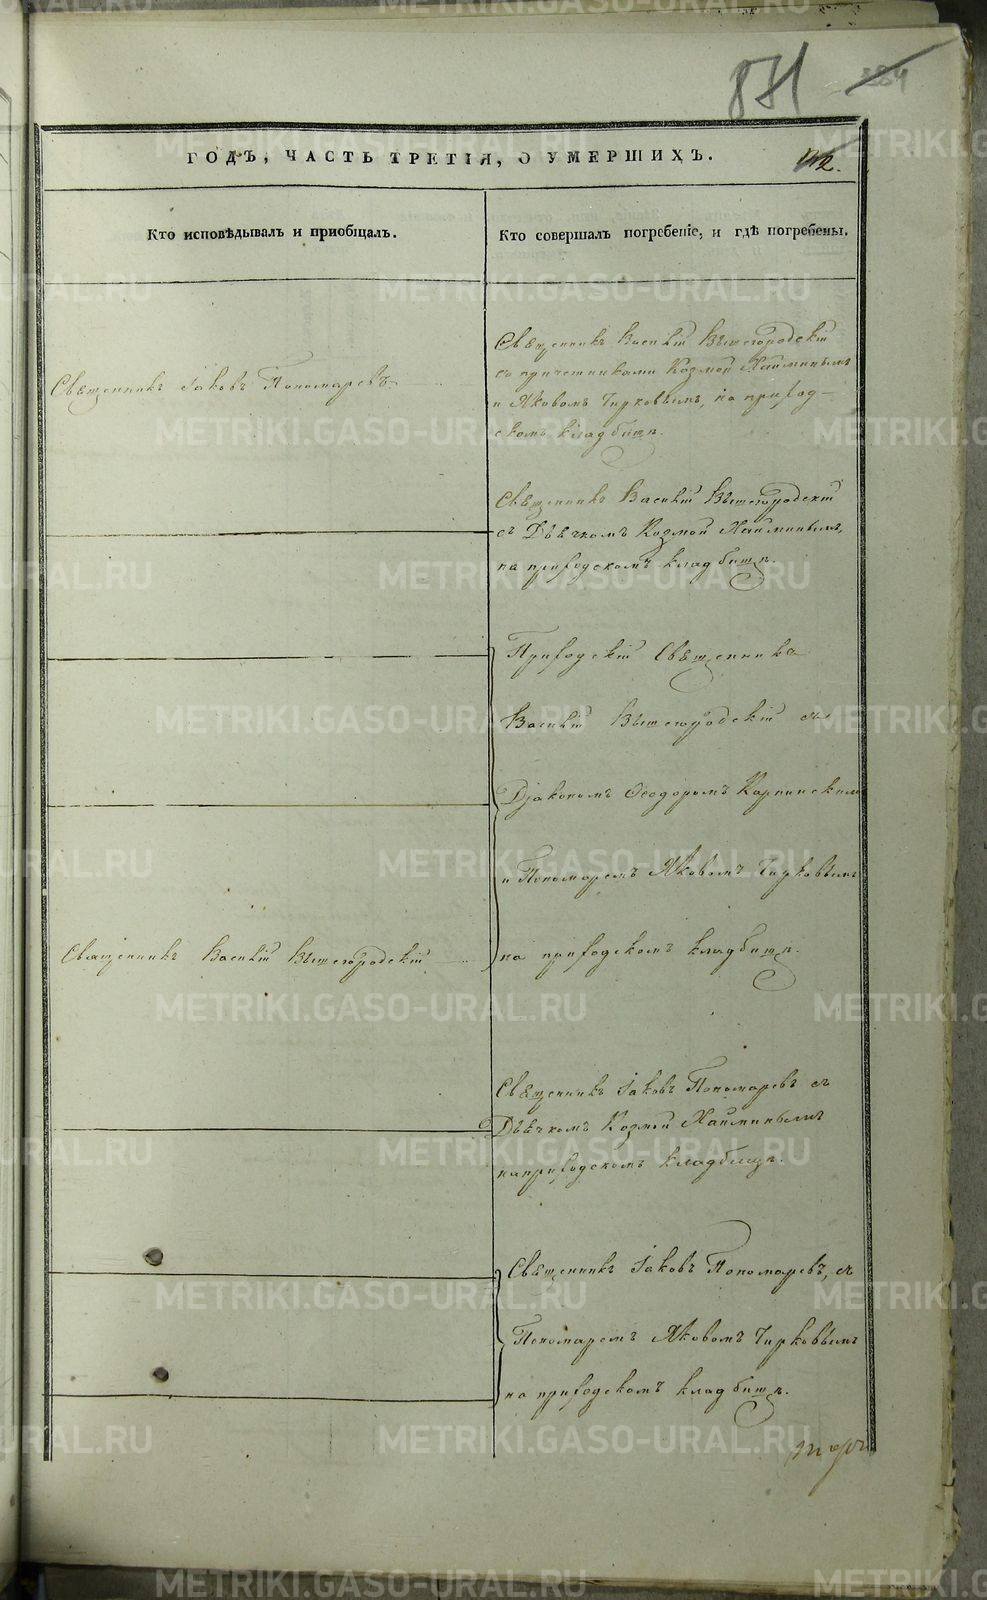 871
284
ГОДЪ, ЧАСТЬ ТРЕТІЯ, О УМЕРШИХЪ.
Кто исповѣдывалъ и пріобщалъ.
Кто совершалъ погребеніе, и гдѣ погребены.
Священникъ Іаковъ Пономаревъ
Священникъ Василій Вышегородскій
съ причетниками Козмой Хайминымъ
и Яковомъ Чирковымъ, на приход-
скомъ кладбищѣ.
Священникъ Василій Вышегородскій
съ Дьячкомъ Козмой Хайминымъ,
на приходскомъ кладбищѣ.
Приходскій Священникъ
Василій Вышегородскій съ
Діакономъ Ѳеодоромъ Карпинскимъ
и Пономаремъ Яковомъ Чирковымъ
на приходскомъ кладбищѣ.
Священникъ Василій Вышегородскій
Священникъ Іаковъ Пономаревъ съ
Дьячкомъ Козмой Хайминымъ
на приходскомъ кладбищѣ.
Священникъ Іаковъ Пономаревъ, съ
Пономаремъ Яковомъ Чирковымъ
на приходскомъ кладбищѣ.
METRIKI.GASO-URAL.RU